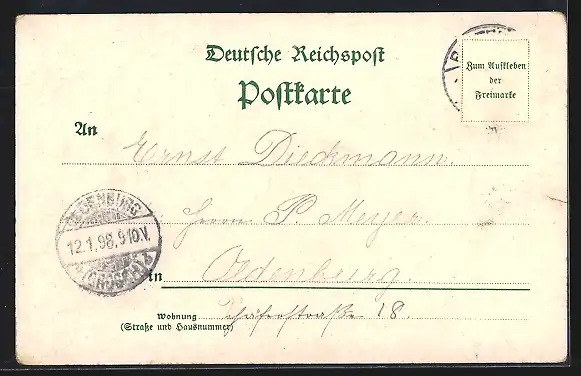 Deutsche Reichspost
Postkarte
Zum Aufkleben
der
Freimarke
An
Ernst Dieckmann.
Herrn P. Meyer.
OLDENBURG
12.1.98.9-10.V.
(GROSSH)
in Oldenburg.
Wohnung
(Straße und Hausnummer)
Schäferstraße 18.